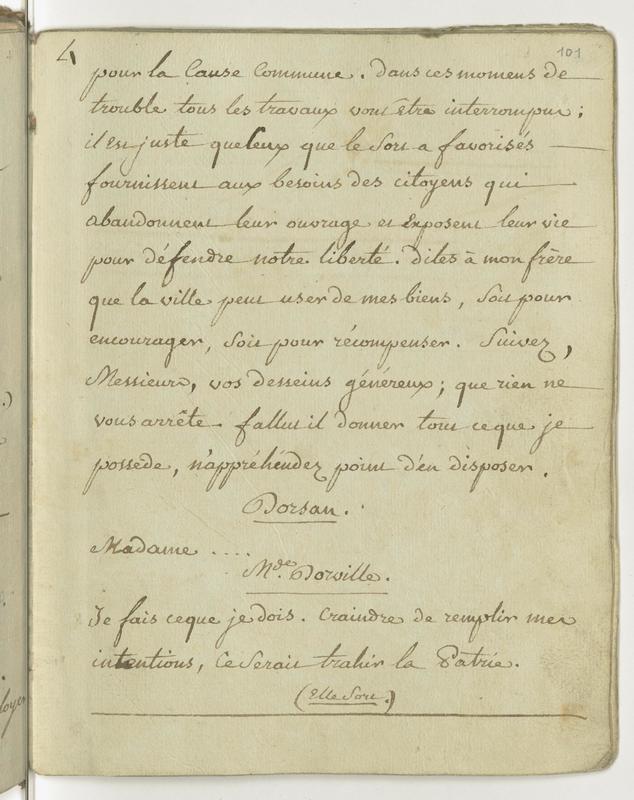 4 101
pour la Cause Commune. Dans ces momens de
trouble tous les travaux vont être interrompus ;
il est juste que ceux que le Sort a favorisés
fournissent aux besoins des citoyens qui
abandonnent leur ouvrage et exposent leur vie
pour défendre notre liberté. Dites à mon frère
que la ville peut user de mes biens, Soit pour
encourager, Soit pour récompenser. Suivez,
Messieurs, vos desseins généreux ; que rien ne
vous arrête. fallut il donner tout ce que je
possede, n'appréhéndez point d'en disposer.
Dorsan.
Madame ....
Mde. Dorville.
Je fais ce que je dois. Craindre de remplir mes
intentions, Ce Serait trahir la Patrie.
(Elle Sort.)